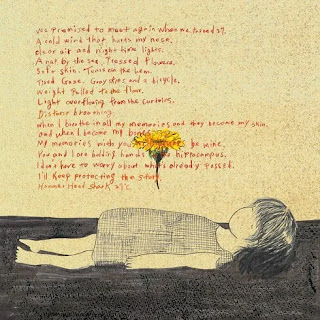 We promised to meet again when we turned 27.
A cold wind that hurts my neck.
clear air and night time lights.
A nap by the sea. Pressed flowers.
Soft skin. Tears on the hem.
Tired Gaze. Gray skies and a bicycle.
Weight Pulled to the floor.
Light overflowing from the curtains.
Distant breathing.
When I breathe in all my memories and they become my skin,
and when I become my bones.
My memories with you be mine.
You and I are holding hands hippocampus.
I don't have to worry about what's already passed.
I'll keep protecting this
Hammer Head Shark 27°C